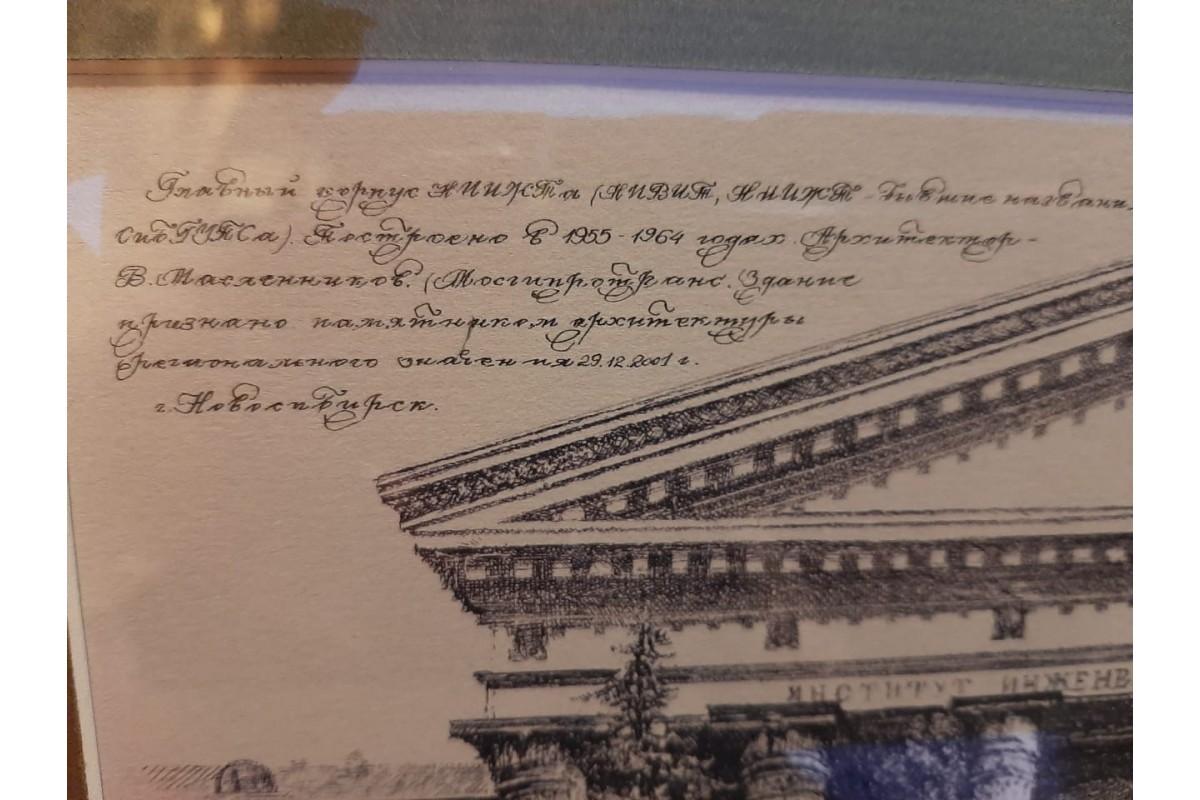 Главный корпус НИИЖТа (НИВИТ, НИИЖТ - бывшие названи
СибГУПСа). Построено в 1955-1964 годах. Архитектор -
В. Масленников. (Мосгипротранс. Здание
признано памятником архитектуры
регионального значения 29.12.2001 г.
г. Новосибирск.
ИНСТИТУТ ИНЖЕНЕ